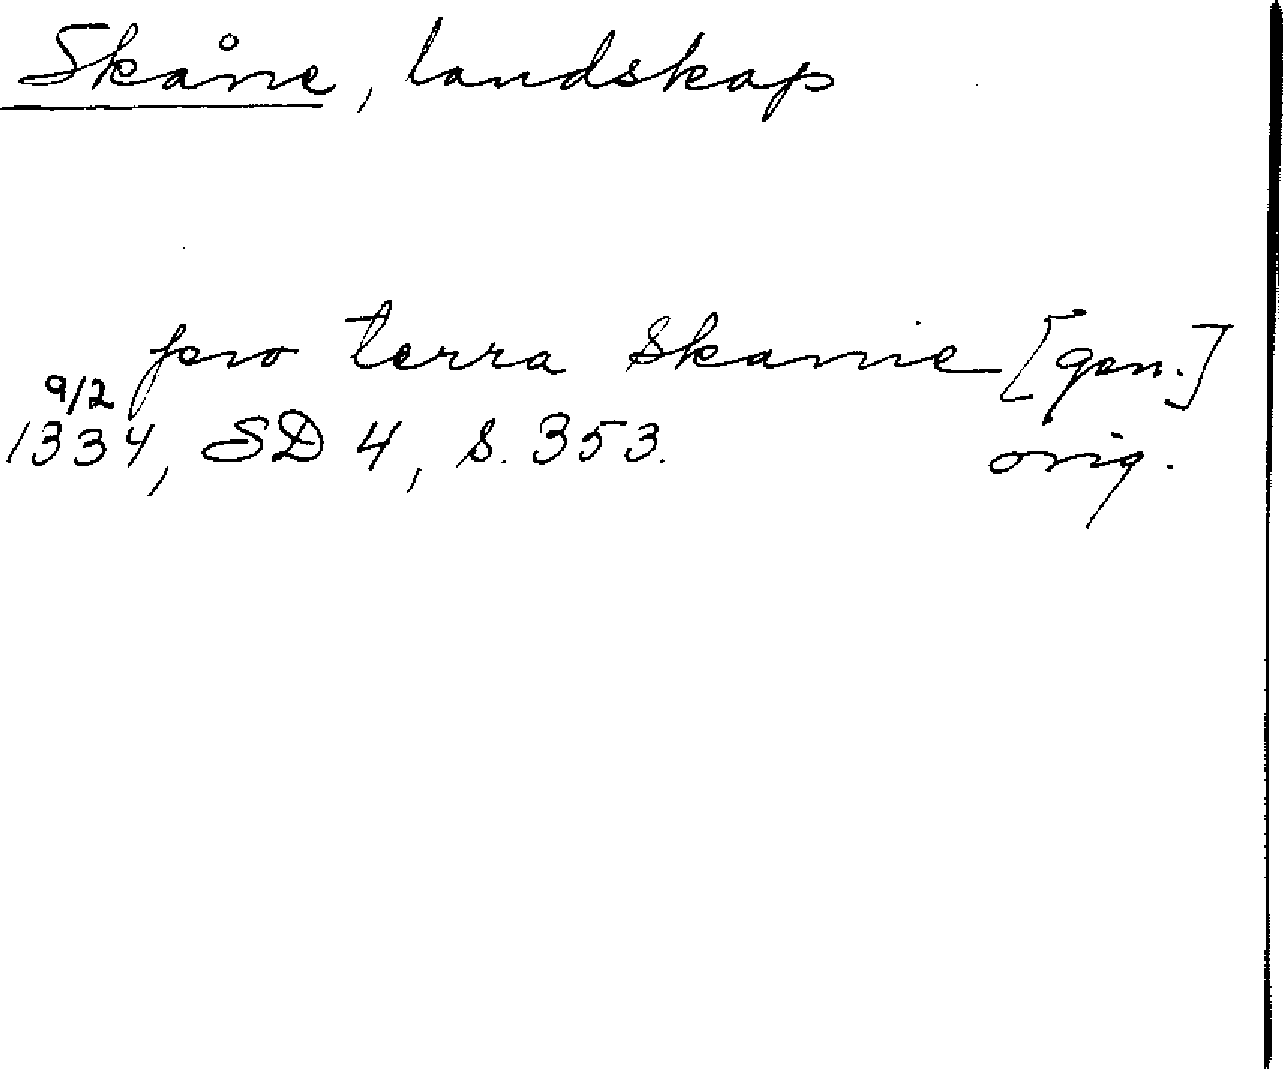 Skåne, landskap
pro terra Skanie [gen.]
9/2
1334, SD 4, s. 353. orig.